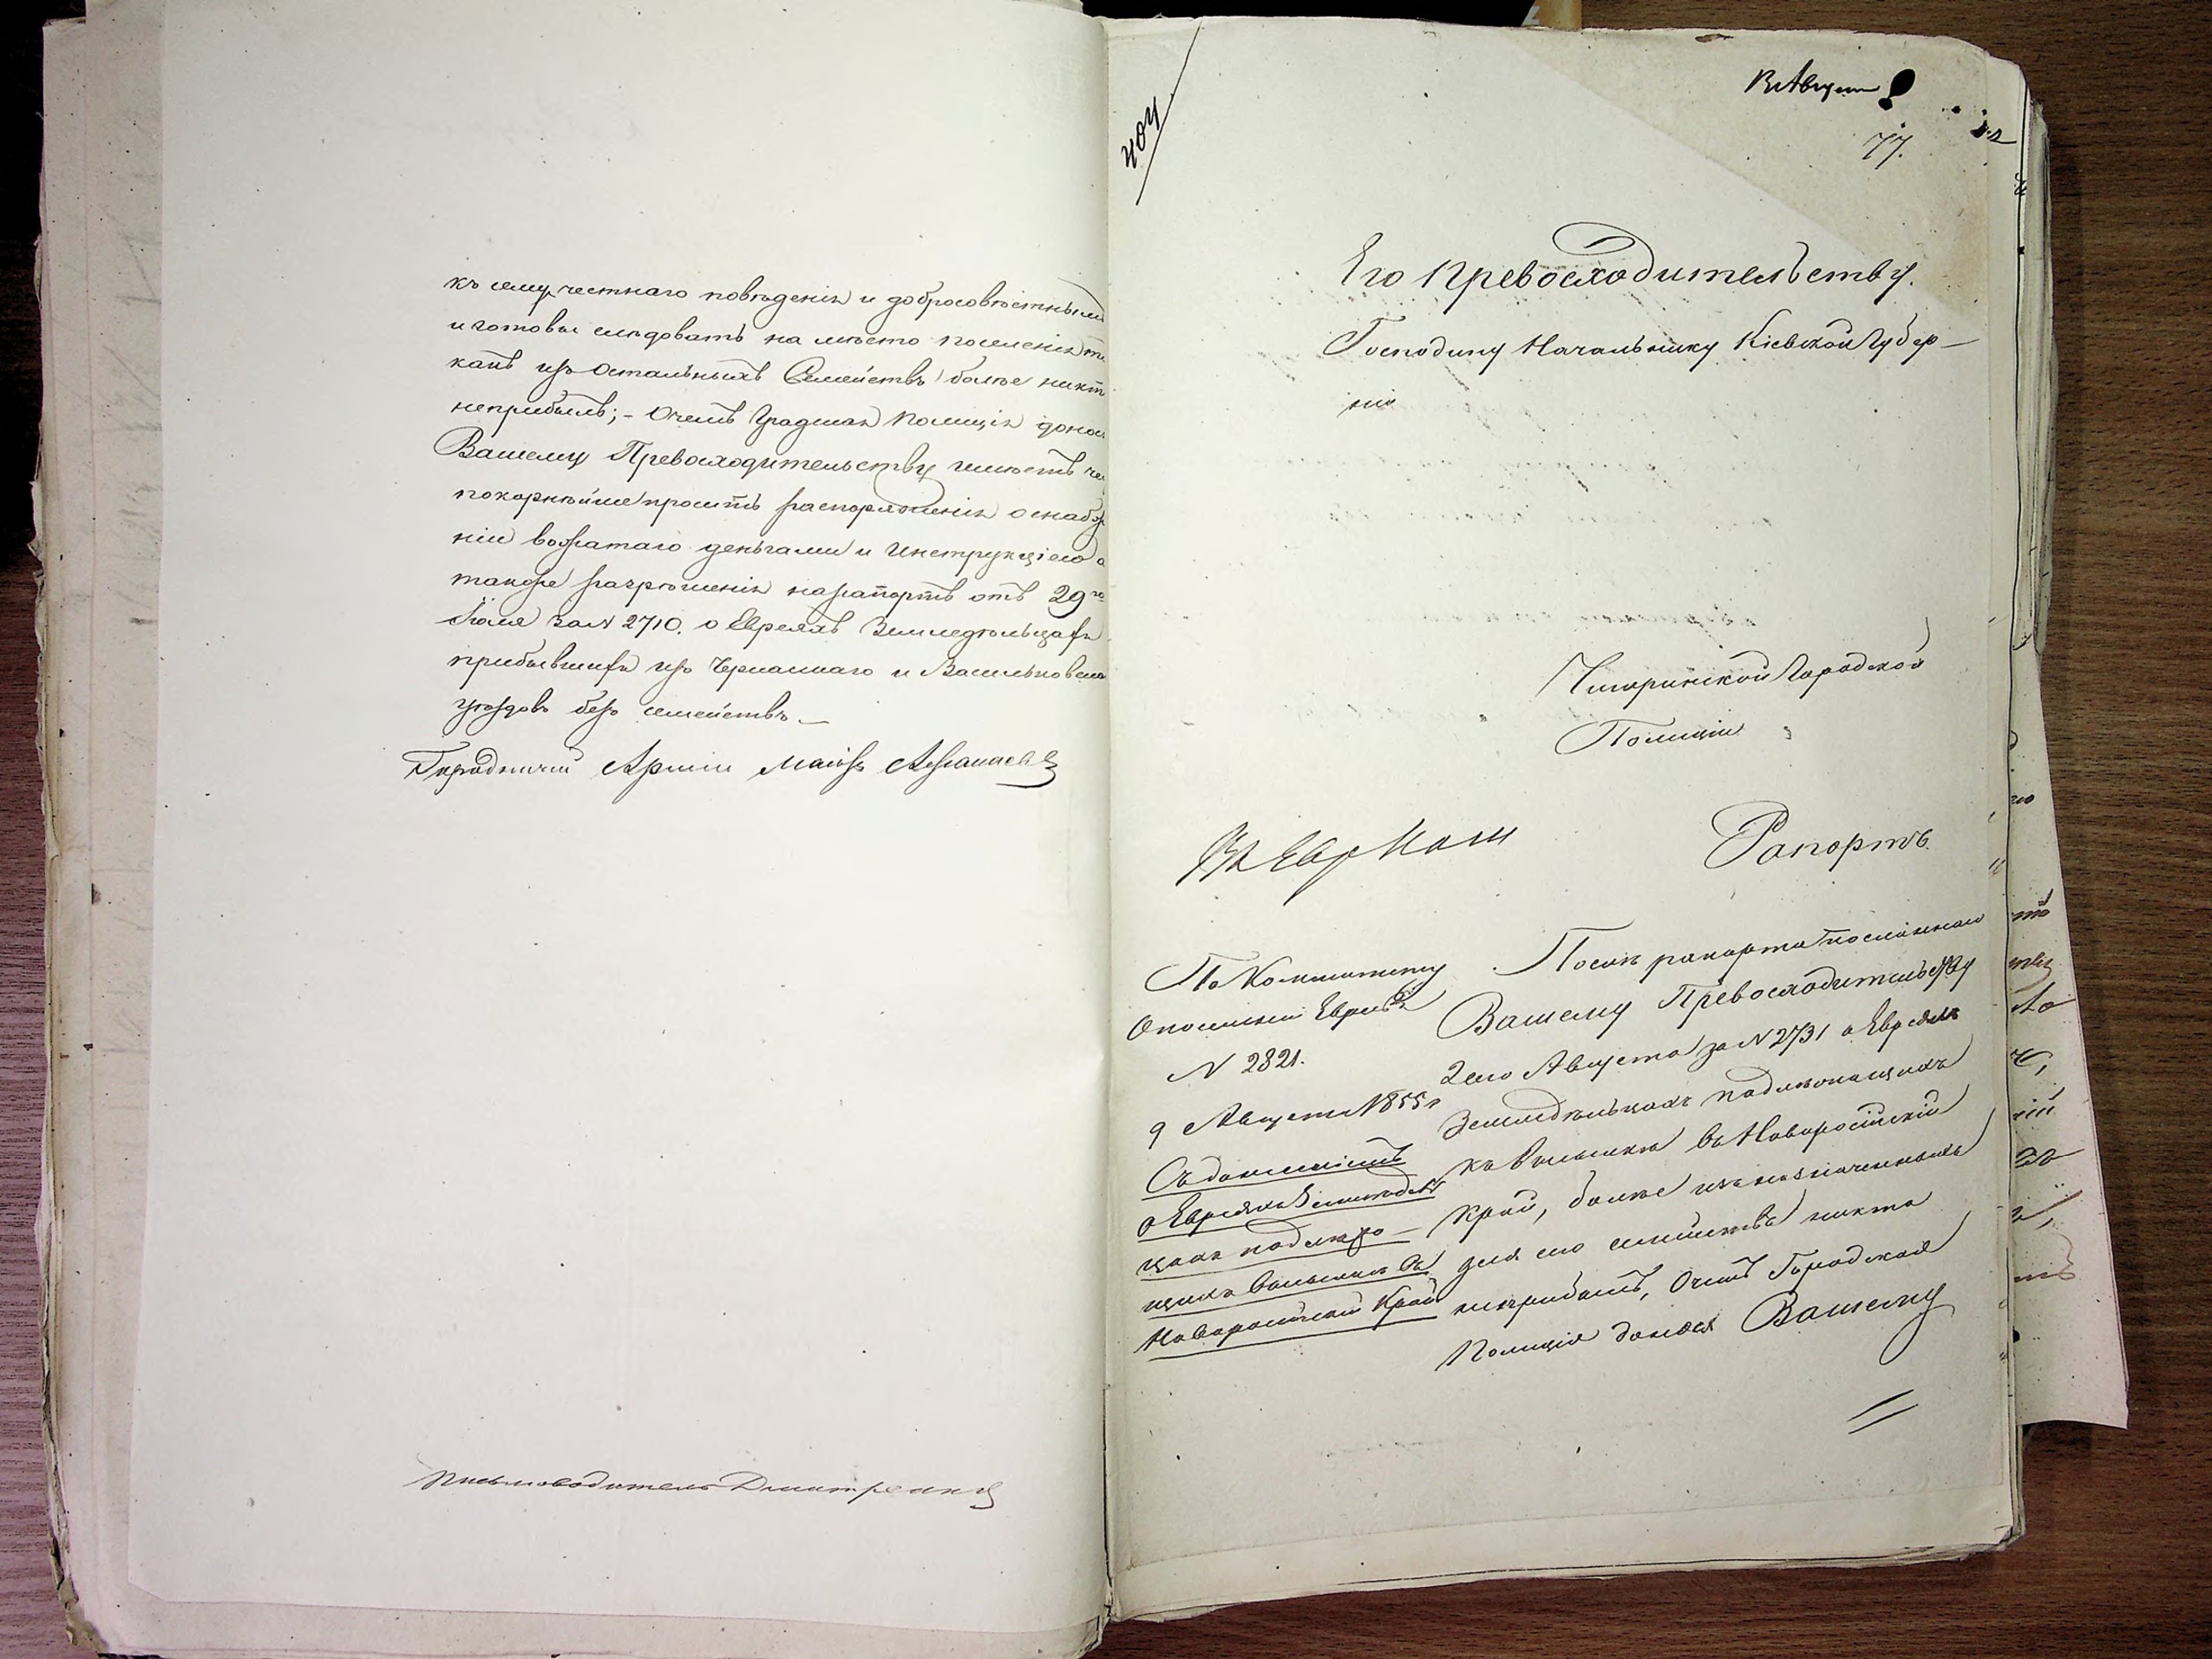 къ сему честнаго поведенія и добросовѣстными
и готовы слѣдовать на мѣсто поселенія
какъ изъ Остальныхъ Семействъ болѣе никт
неприбылъ; – О чемъ Градская Полиція донос
Вашему Превосходительству имѣетъ че
покорнѣйше просить распоряженія о снабж
ніи вожатаго деньгами и Инструкціею а
также разрѣшенія на рапортъ отъ 29го
Іюля за N 2710. о Евреяхъ Земледѣльцахъ
прибывшихъ изъ Черкаскаго и Васильковска
уѣздовъ безъ семействъ. –
Городничій Арміи Маіоръ
Письмоводитель Дмитренко
404
77.
Его Превосходительству.
Господину Начальнику Кіевской Губер–
ніи
Чигиринской Городской
Полиціи
Рапортъ.
По Коммитету
О поселеніи Евреевъ
N 2821.
9 Августа 1855 г
Съ донесеніемъ
о Евреяхъ Земледѣль
цахъ подлежа–
щихъ высылкѣ въ
Новоросійскій Край
Послѣ рапорта посланнаго
Вашему Превосходительству
2 сего Августа за N 2731 о Евреяхъ
Земледѣльцахъ подлежащихъ
къ высылкѣ въ Новоросійскій
Край, болѣе изъ назначенныхъ
для сего семействъ никто
неприбылъ, О чемъ Городская
Полиція донося Вашему